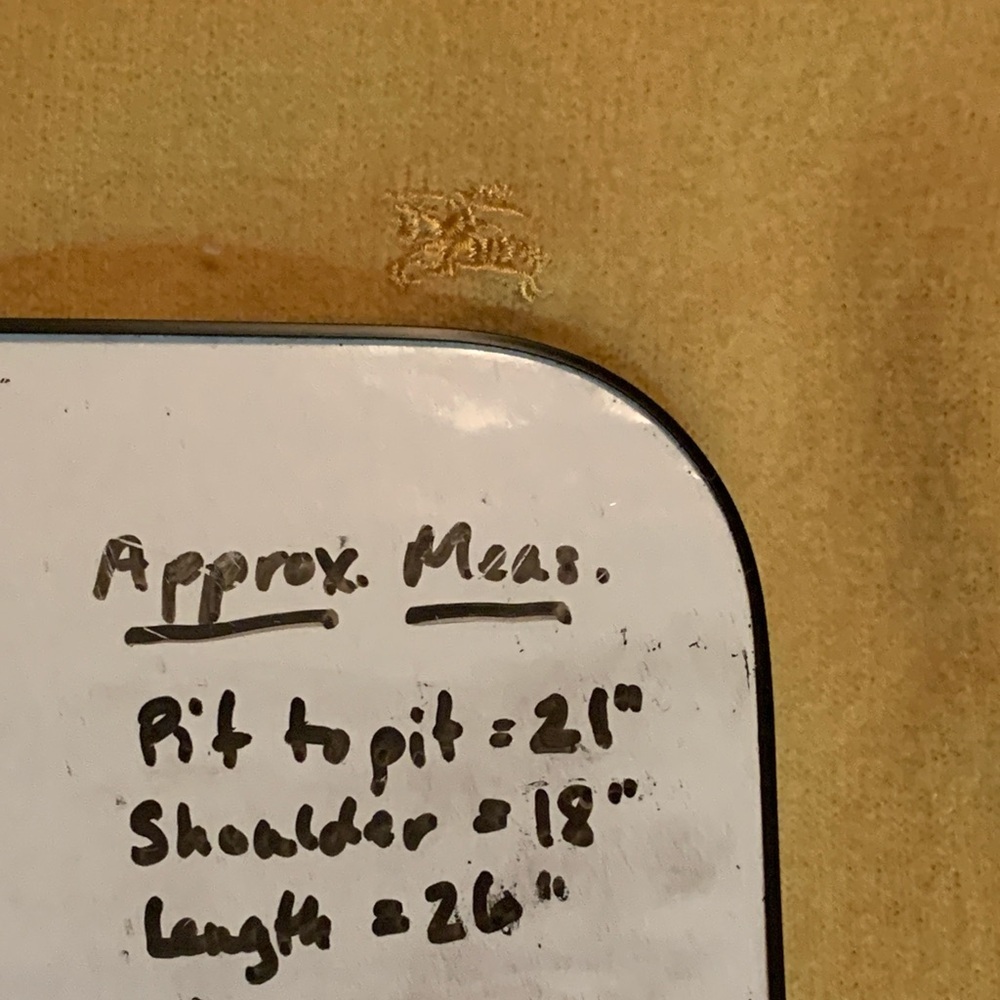 Approx. Meas.
Pit to pit = 21"
Shoulder = 18"
Length = 26"